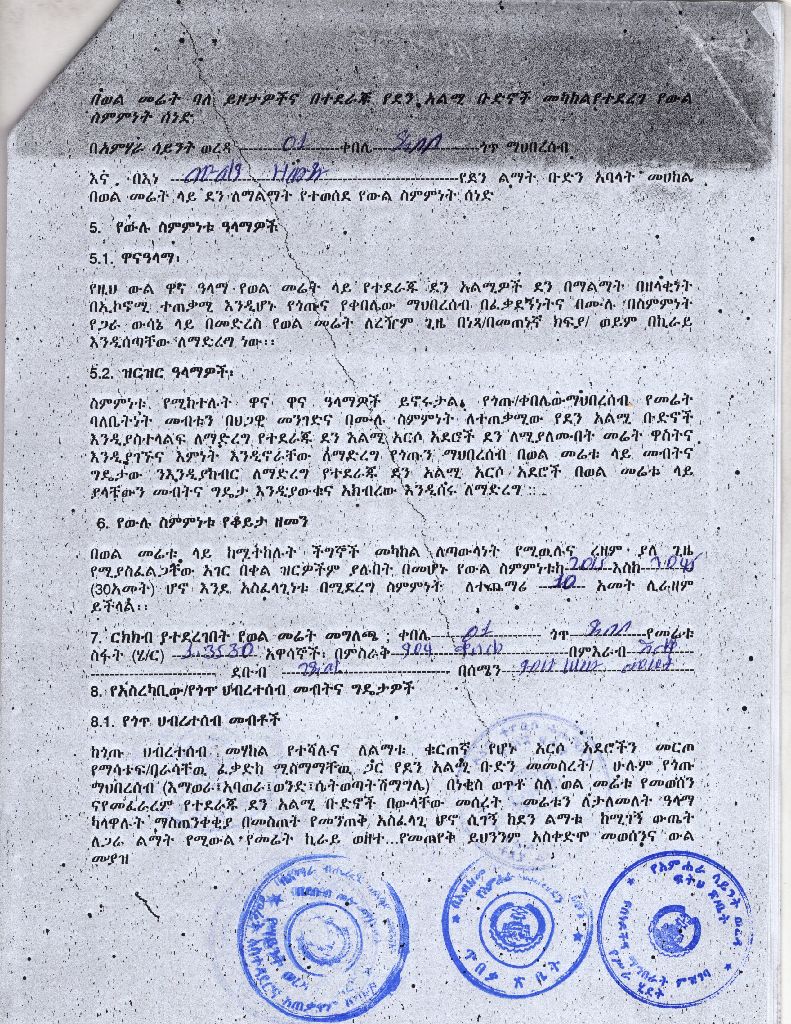 በወል መሬት ባለ ይዞታዎችና በተደራጁ የደን አልሚ ቡድኖች መካከልየተደረገ የውል
ስምምነት ሰነድ
በአምሃራ ሳይንት ወረዳ 01 ቀበሌ ጎጥ ማህበረሰብ
እና በእነ የደን ልማት ቡድን አባላት መሀከል
በወል መሬት ላይ ደን ለማልማት የተወሰደ የውል ስምምነት ሰነድ
5. የውሉ ስምምነቱ ዓላማዎች
5.1. ዋናዓላማ፡
የዚህ ውል ዋና ዓላማ የወል መሬት ላይ የተደራጁ ደን አልሚዎች ደን በማልማት በዘላቂነት
በኢኮኖሚ ተጠቃሚ እንዲሆኑ የጎጡና የቀበሌው ማህበረሰብ በፈቃደኝነትና በሙሉ በስምምነት
የጋራ ውሳኔ ላይ በመድረስ የወል መሬት ለረዥም ጊዜ በነጻ/በመጠነኛ ክፍያ/ ወይም በኪራይ
እንዲሰጣቸው ለማድረግ ነው፡፡
5.2. ዝርዝር ዓላማዎች፡
ስምምነቱ የሚከተሉት ዋና ዋና ዓላማዎች ይኖሩታል፤ የጎጡ/ቀበሌውማህበረሰብ የመሬት
ባለቤትነት መብቱን በህጋዊ መንገድና በሙሉ ስምምነት ለተጠቃሚው የደን አልሚ ቡድኖች
እንዲያስተላልፍ ለማድረግ የተደራጁ ደን አልሚ አርሶ አደሮች ደን ለሚያለሙበት መሬት ዋስትና
እንዲያገኙና እምነት እንዲኖራቸው ለማድረግ የጎጡን ማህበረሰብ በወል መሬቱ ላይ መብትና
ግዴታው ንእንዲያከብር ለማድረግ የተደራጁ ደን አልሚ አርሶ አደሮች በወል መሬቱ ላይ
ያላቸውን መብትና ግዴታ እንዲያውቁና አክብረው እንዲሰሩ ለማድረግ ።
6. የውሉ ስምምነቱ የቆይታ ዘመን
በወል መሬቱ ላይ ከሚተከሉት ችግኞች መካከል ለጣውላነት የሚዉሉና ረዘም ያለ ጊዜ
የሚያስፈልጋቸው አገር በቀል ዝርዎችም ያሉበት በመሆኑ የውል ስምምነቱከ 2015 እስከ 2045
(30አመት) ሆኖ እንደ አስፈላጊነቱ በሚደረግ ስምምነት ለተጨማሪ 10 አመት ሊራዘም
ይችላል፡፡
7. ርክክብ ያተደረገበት የወል መሬት መግለጫ ; ቀበሌ 01 ጎጥ የመሬቱ
ስፋት (ሄ/ር) 1.3530 አዋሳኞች፤ በምስራቅ በምእራብ
ደቡብ በሰሜን
8. የአስረካቢው/የጎጥ ህብረተሰብ መብትና ግዴታዎች
8.1. የጎጥ ህብሪተሰብ መብቶች
ከጎጡ ህብረተሰብ መሃከል የተሻሉና ለልማቱ ቁርጠኛ የሆኑ አርሶ አደሮችን መርጦ
የማሳተፍ/በራሳቸዉ ፈቃድከ ሚስማማቸዉ ጋር የደን አልሚ ቡድን መመስረት/ ሁሉም የጎጡ
ማህበረሰብ (እማወራ፤አባወራ፤ወንድ፤ሴትወጣት፤ሽማግሌ) በነቂስ ወጥቶ ስለ ወል መሬቱ የመወሰን
ናየመፈራረም የተደራጁ ደን አልሚ ቡድኖች በውላቸው መሰረት መሬቱን ለታለመለት ዓላማ
ካላዋሉት ማስጠንቀቂያ በመስጠት የመንጠቅ አስፈላጊ ሆኖ ሲገኝ ከደን ልማቱ ከሚገኝ ውጤት
ለጋራ ልማት የሚውል የመሬት ኪራይ ወዘተ...የመጠየቅ ይህንንም አስቀድሞ መወሰንና ውል
መያዝ